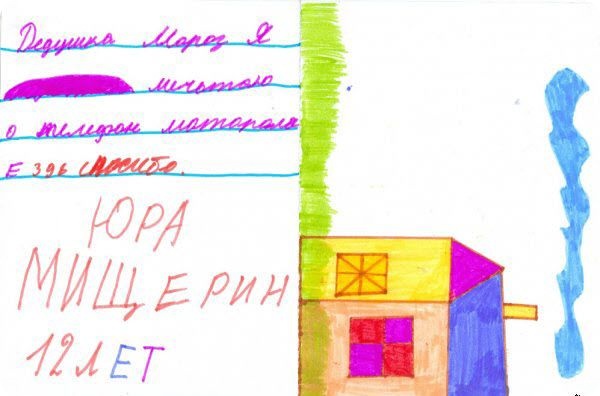 Дедушка Мароз Я
мечатаю
о телефон матарола
Е 396 спосибо.
ЮРА
МИЩЕРИН
12 ЛЕТ